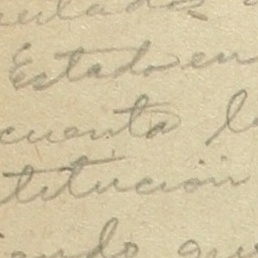 Estado en
cuenta l
titución
endo que